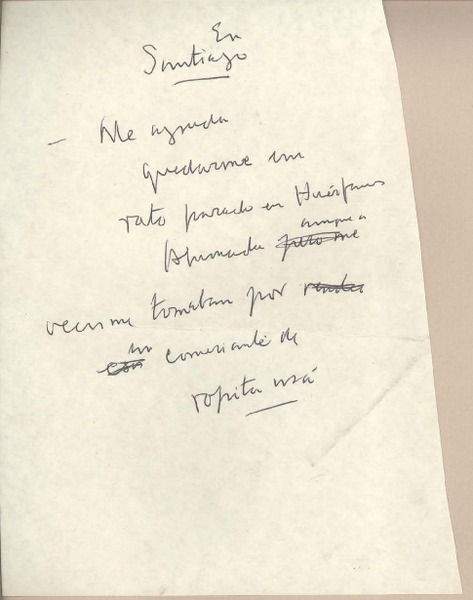 En
Santiago
— Me agrada
quedarme un
rato parado en Huérfanos
Ahumada aunque a
pero me
veces me tomaban por
un comerciante de
ropita usá